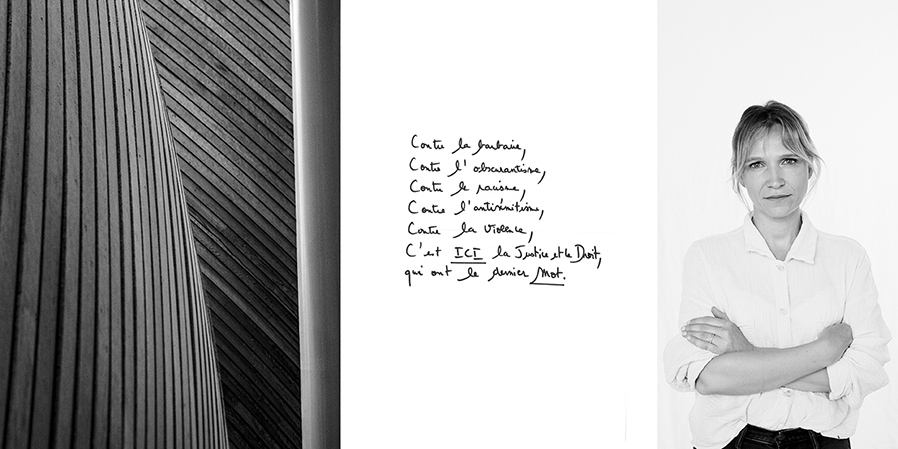 Contre la barbarie,
Contre l'obscurantisme,
Contre le racisme,
Contre l'antisémitisme,
Contre la violence,
C'est ICI la Justice et le Droit,
qui ont le dernier Mot.